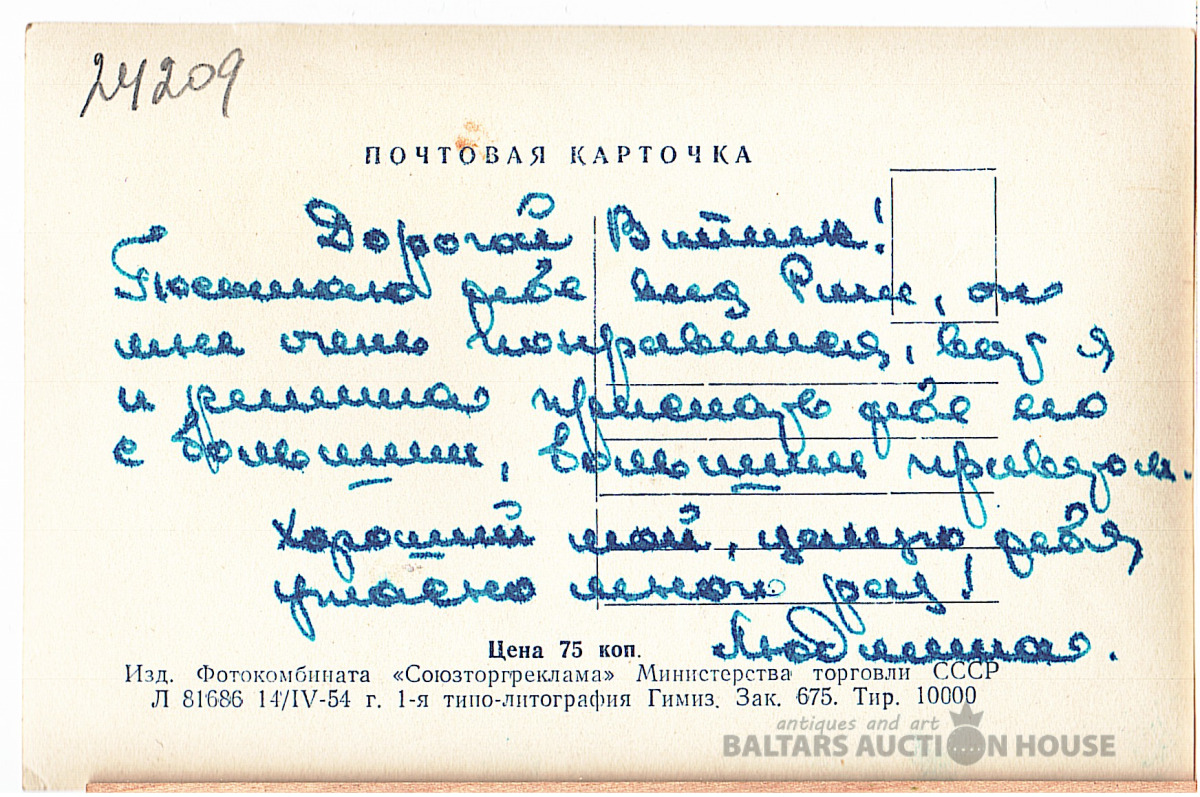 24209
ПОЧТОВАЯ КАРТОЧКА
Дорогой Витик!
Посылаю тебе вид Риги, он
мне очень понравился, вот я
и решила прислать тебе его
с большим, большим приветом.
Хороший мой, целую тебя
ужасно много раз!
Людмила.
Цена 75 коп.
Изд. Фотокомбината «Союзторгреклама» Министерства торговли СССР
Л 81686 14/IV-54 г. 1-я типо-литография Гимиз. Зак. 675. Тир. 10000
antiques and art
BALTARS AUCTION HOUSE